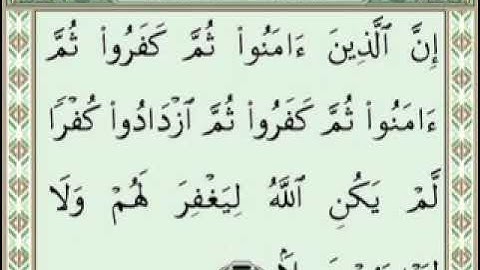 إِنَّ ٱلَّذِينَ ءَامَنُوا۟ ثُمَّ كَفَرُوا۟ ثُمَّ
ءَامَنُوا۟ ثُمَّ كَفَرُوا۟ ثُمَّ ٱزْدَادُوا۟ كُفْرًا
لَّمْ يَكُنِ ٱللَّهُ لِيَغْفِرَ لَهُمْ وَلَا